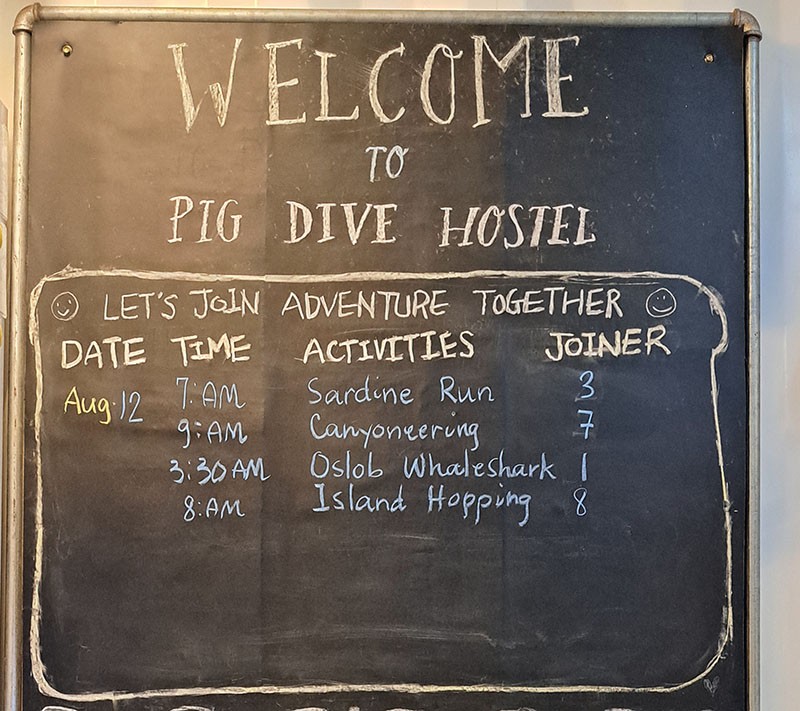 WELCOME
TO
PIG DIVE HOSTEL
LET'S JOIN ADVENTURE TOGETHER
DATE TIME ACTIVITIES JOINER
Aug.12 7:AM Sardine Run 3
9:AM Canyoneering 7
3:30AM Oslob Whaleshark 1
8:AM Island Hopping 8